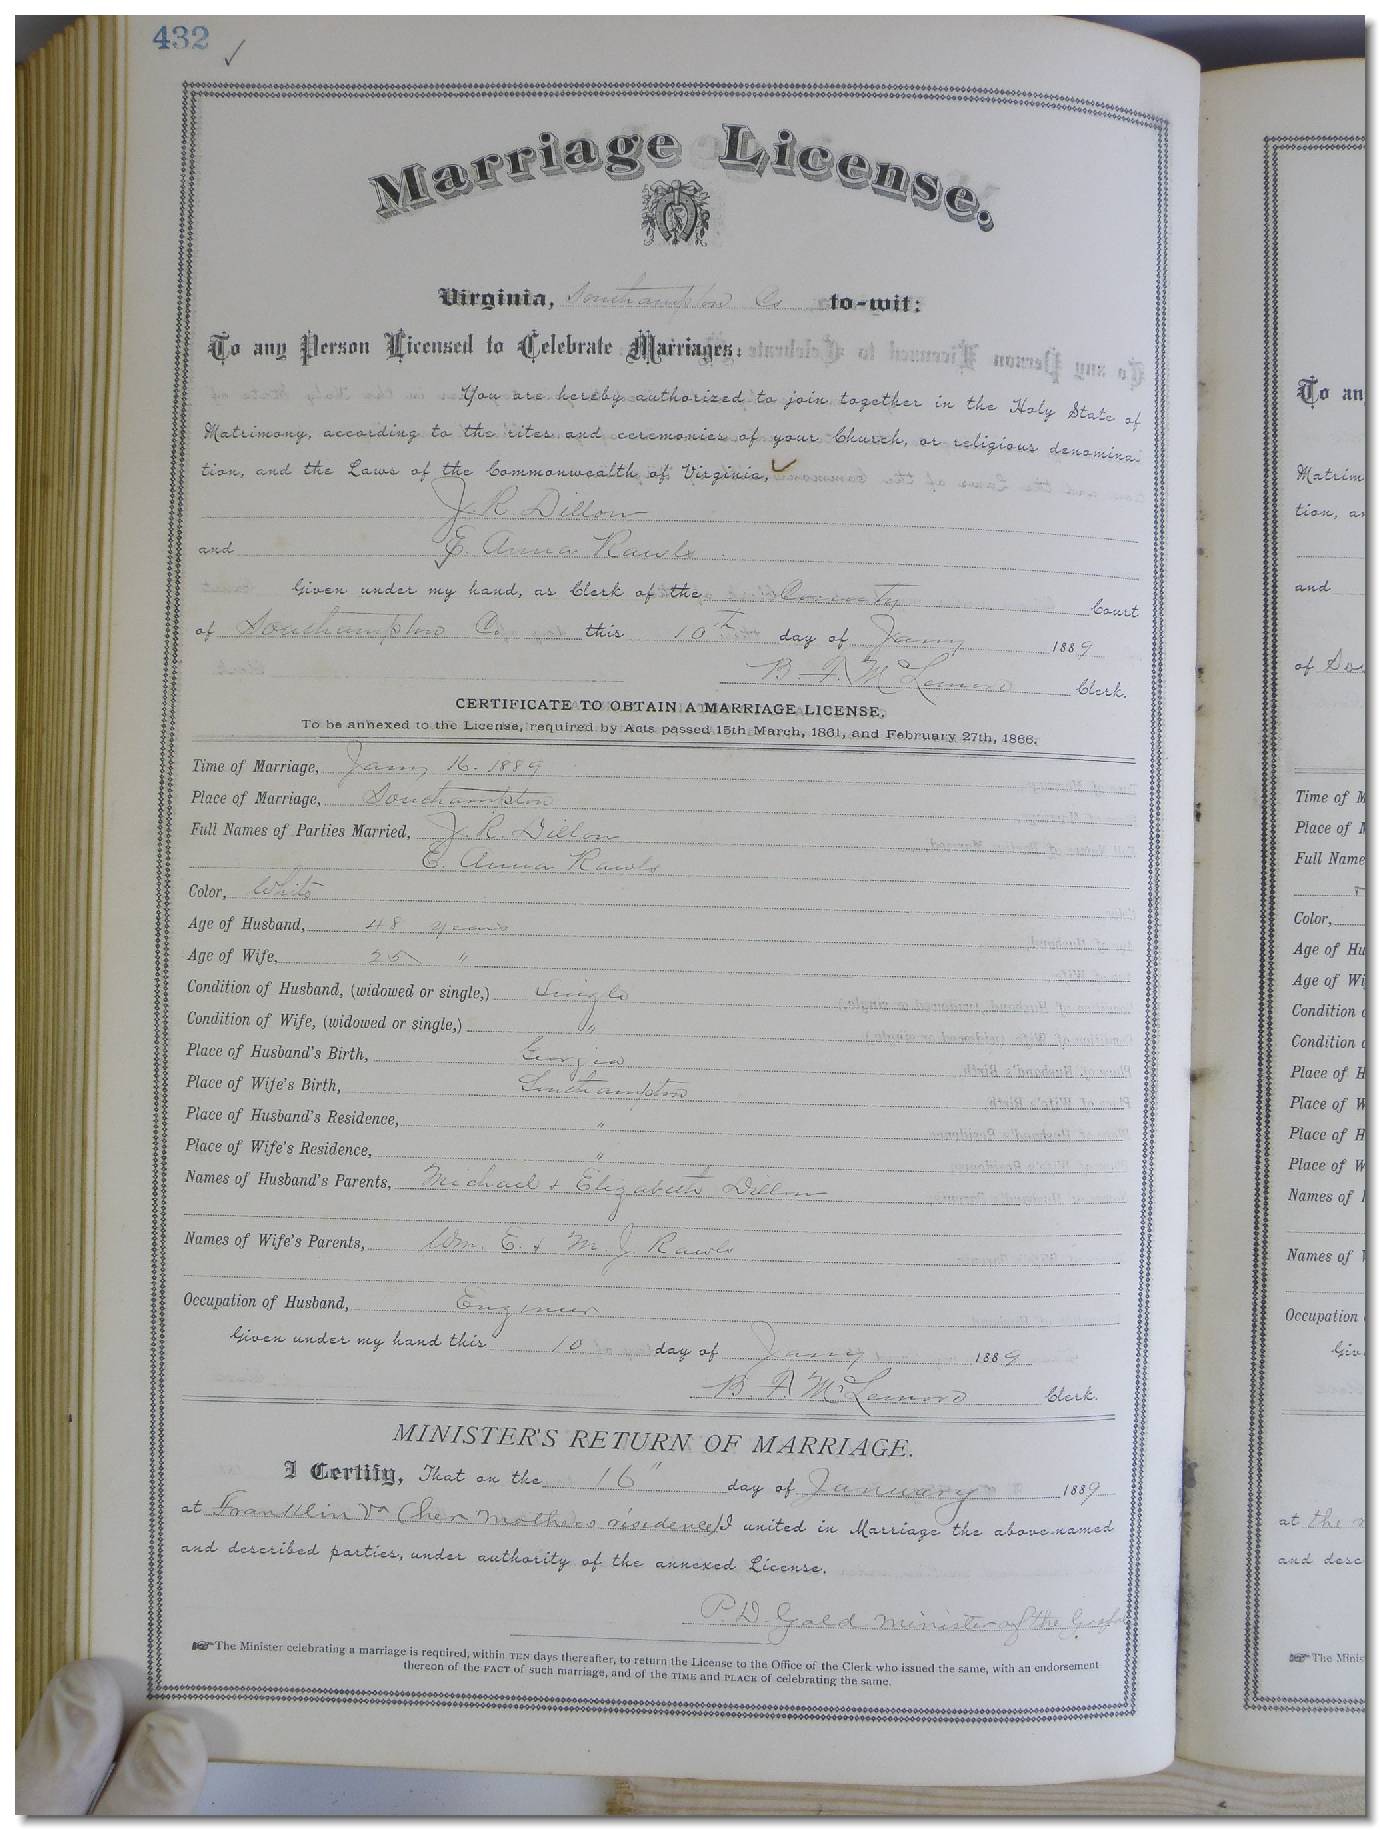 432 ✓
Marriage License.
Virginia, Southampton Co to-wit:
To any Person Licensed to Celebrate Marriages:
You are hereby authorized to join together in the Holy State of
Matrimony, according to the rites and ceremonies of your Church, or religious denomina-
tion, and the Laws of the Commonwealth of Virginia,
J. R. Dillow
and E. Anna Rawls
Given under my hand, as Clerk of the County Court
of Southampton Co this 10th day of Jany 1889
B. F. McLemore Clerk.
CERTIFICATE TO OBTAIN A MARRIAGE LICENSE,
To be annexed to the License, required by Acts passed 15th March, 1861, and February 27th, 1866.
Time of Marriage, Jany 16. 1889
Place of Marriage, Southampton
Full Names of Parties Married, J. R. Dillow
E. Anna Rawls
Color, White
Age of Husband, 48 years
Age of Wife, 25 "
Condition of Husband, (widowed or single,) Single
Condition of Wife, (widowed or single,) "
Place of Husband's Birth, Georgia
Place of Wife's Birth, Southampton
Place of Husband's Residence, "
Place of Wife's Residence, "
Names of Husband's Parents, Michael & Elizabeth Dillow
Names of Wife's Parents, Wm. E. & M J Rawls
Occupation of Husband, Engineer
Given under my hand this 10 day of Jany 1889
B. F. McLemore Clerk.
MINISTER'S RETURN OF MARRIAGE.
I Certify, That on the 16" day of January 1889
at Franklin Va (her mothers residence) I united in Marriage the above-named
and described parties, under authority of the annexed License.
P. D. Gold minister of the Gospel
☞ The Minister celebrating a marriage is required, within TEN days thereafter, to return the License to the Office of the Clerk who issued the same, with an endorsement
thereon of the FACT of such marriage, and of the TIME and PLACE of celebrating the same.
To an
Matrim
tion, a
and
of So
Time of M
Place of M
Full Name
Color,
Age of Hu
Age of Wi
Condition o
Condition o
Place of H
Place of W
Place of H
Place of W
Names of
Names of
Occupation
Giv
at the
and desc
☞ The Minis